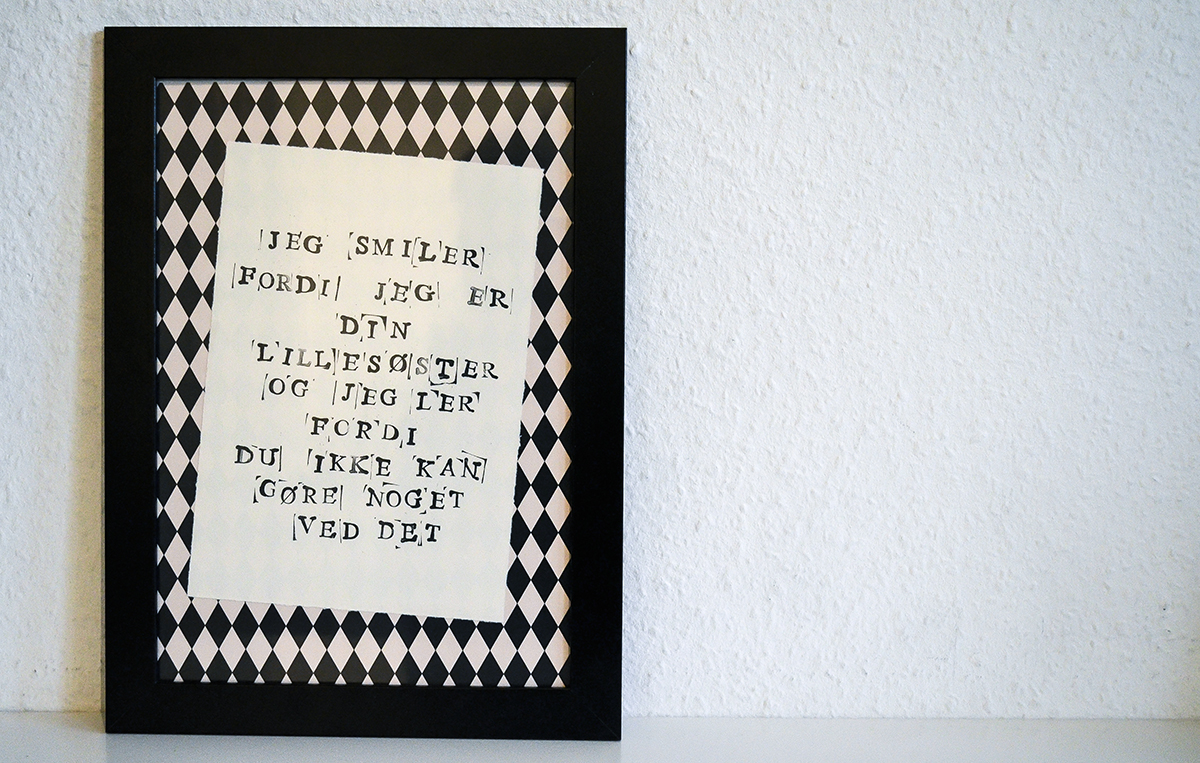 JEG SMILER
FORDI JEG ER
DIN
LILLESØSTER
OG JEG LER
FORDI
DU IKKE KAN
GØRE NOGET
VED DET